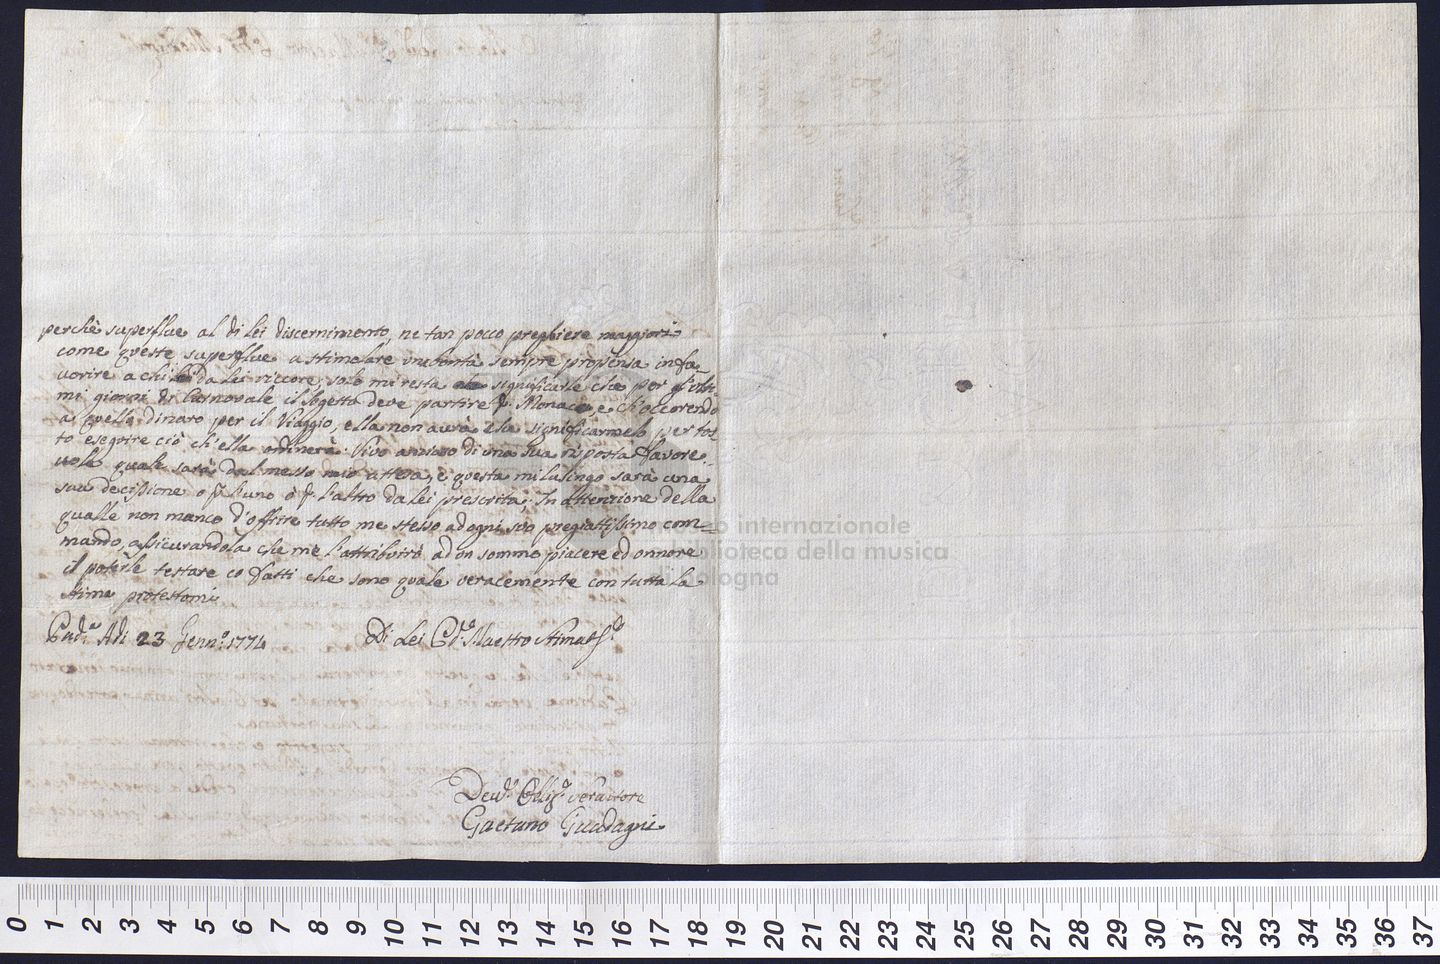 perchè superflue al di lei discernimento, ne tan pocco preghiere maggiori
come queste superflue a stimolare una bontà sempre propensa in fa=
vorire a chi da lei riccore, solo mi resta significarle che per gl'ulti=
mi giorni di Carnovale il Sogetto deve partire p. Monaco, e ch'occorendo
a quello dinaro per il Viaggio, ella non aurà che significarmelo per tos=
to eseguire ciò ch'ella ordinerà. Vivo ansioso di una sua risposta favore=
vole quale sarà dal messo mio attesa, e questa mi lusingo sarà una
sua decissione o p. l'uno ò p. l'altro da lei prescrita; In Attenzione della
qualle non manco d'offrire tutto me stesso ad ogni suo pregiattissimo com=
mando, assicurandola che me l'attribuirò ad un sommo piacere ed onnore
il poterle testare co fatti che sono quale veracemente con tutta la
stima protestomi
Pad.a Adi 23 Genn.o 1774 Di Lei Maestro Stimatis.o
Dev.o Obblig.o Servitore
Gaetano Guadagni
museo internazionale
e biblioteca della musica
di bologna
0 1 2 3 4 5 6 7 8 9 10 11 12 13 14 15 16 17 18 19 20 21 22 23 24 25 26 27 28 29 30 31 32 33 34 35 36 37